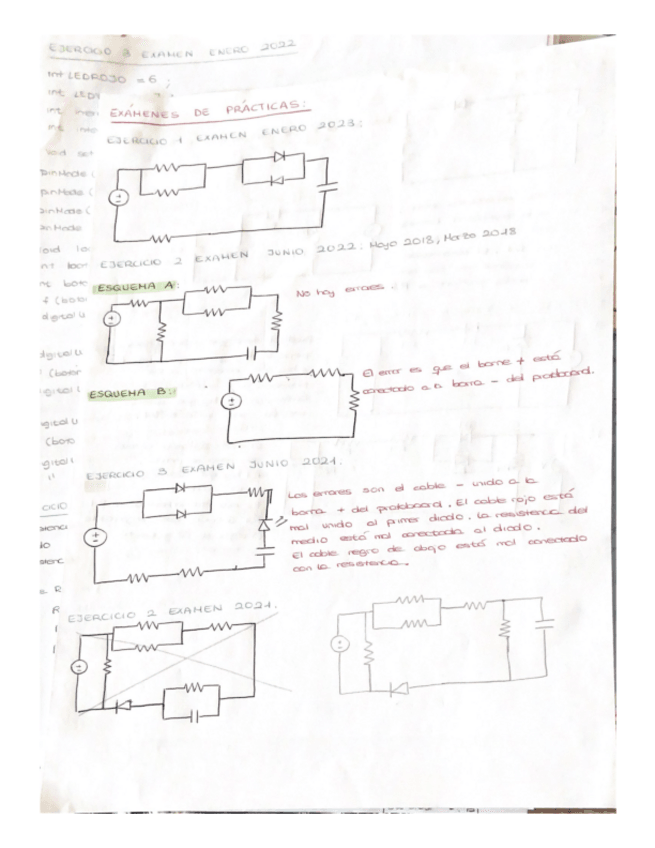 EJERCICIO 3 EXAMEN ENERO 2022
int LEDROJO = 6 ;
int
int
int
void
EXÁMENES DE PRÁCTICAS:
EJERCICIO 1 EXAMEN ENERO 2023:
EJERCICIO 2 EXAMEN JUNIO 2022: Mayo 2018, Marzo 2018
ESQUEMA A:
No hay errores.
ESQUEMA B:
El error es que el borne + está
conectado a la barra - del protoboard.
EJERCICIO 3 EXAMEN JUNIO 2021:
Los errores son el cable - unido a la
barra + del protoboard. El cable rojo está
mal unido al primer diodo. La resistencia del
medio está mal conectada al diodo.
El cable negro de abajo está mal conectado
con la resistencia.
EJERCICIO 2 EXAMEN 2021.